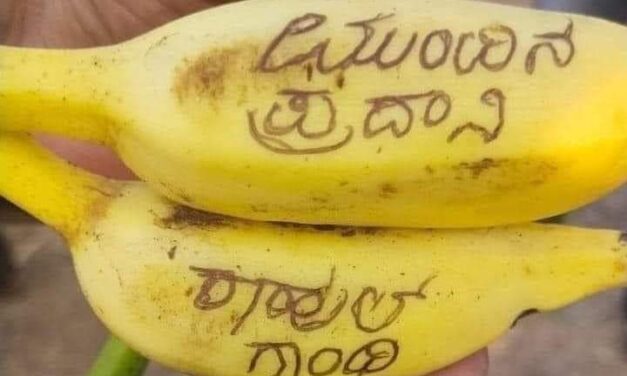 ಮುಂದಿನ
ಪ್ರದಾನಿ
ರಾಹುಲ್
ಗಾಂಧಿ